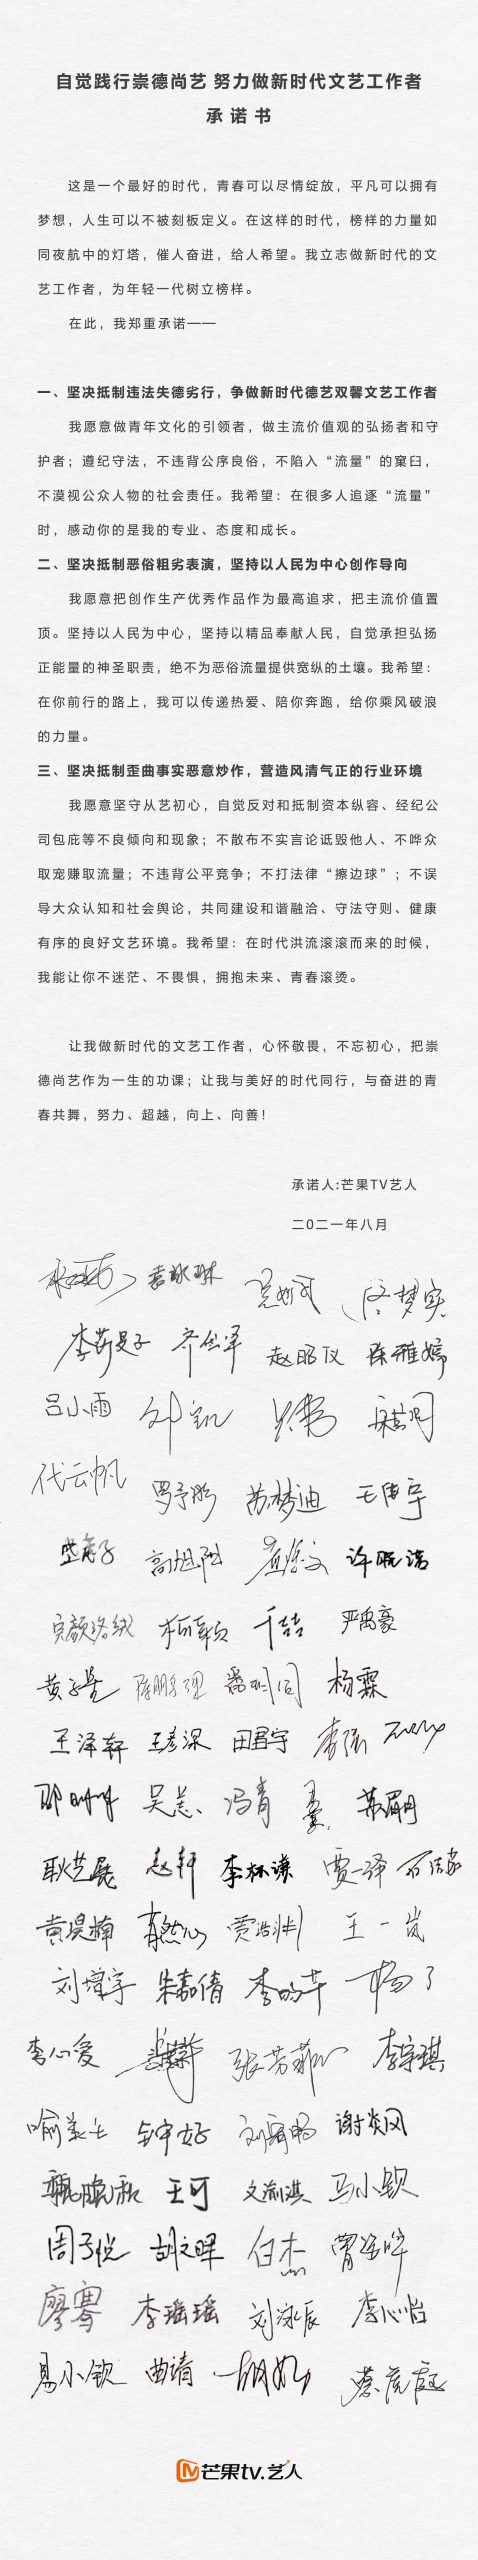 自觉践行崇德尚艺 努力做新时代文艺工作者
承 诺 书
这是一个最好的时代，青春可以尽情绽放，平凡可以拥有
梦想，人生可以不被刻板定义。在这样的时代，榜样的力量如
同夜航中的灯塔，催人奋进，给人希望。我立志做新时代的文
艺工作者，为年轻一代树立榜样。
在此，我郑重承诺——
一、坚决抵制违法失德劣行，争做新时代德艺双馨文艺工作者
我愿意做青年文化的引领者，做主流价值观的弘扬者和守
护者；遵纪守法，不违背公序良俗，不陷入“流量”的窠臼，
不漠视公众人物的社会责任。我希望：在很多人追逐“流量”
时，感动你的是我的专业、态度和成长。
二、坚决抵制恶俗粗劣表演，坚持以人民为中心创作导向
我愿意把创作生产优秀作品作为最高追求，把主流价值置
顶。坚持以人民为中心，坚持以精品奉献人民，自觉承担弘扬
正能量的神圣职责，绝不为恶俗流量提供宽纵的土壤。我希望：
在你前行的路上，我可以传递热爱、陪你奔跑，给你乘风破浪
的力量。
三、坚决抵制歪曲事实恶意炒作，营造风清气正的行业环境
我愿意坚守从艺初心，自觉反对和抵制资本纵容、经纪公
司包庇等不良倾向和现象；不散布不实言论诋毁他人、不哗众
取宠赚取流量；不违背公平竞争；不打法律“擦边球”；不误
导大众认知和社会舆论，共同建设和谐融洽、守法守则、健康
有序的良好文艺环境。我希望：在时代洪流滚滚而来的时候，
我能让你不迷茫、不畏惧，拥抱未来、青春滚烫。
让我做新时代的文艺工作者，心怀敬畏，不忘初心，把崇
德尚艺作为一生的功课；让我与美好的时代同行，与奋进的青
春共舞，努力、超越，向上、向善！
承诺人:芒果TV艺人
二〇二一年八月
袁咏琳
李莎旻子 赵昭仪 陈雅婷
吕小雨
代云帆 罗予彤 苏梦迪
高旭阳 许晓诺
完颜洛绒 千喆 严禹豪
黄子星 杨霖
王泽轩 王彦深 田君宇
冯青
耿艺展 赵轩 李怀谦 贾一泽
黄昊楠 王一岚
刘增宇 朱嘉倩 杨了
李心爱 张芳菲 李宇琪
谢炎风
王可 文渝淇 马小钦
周子悦 胡文晖 白杰
廖骞 李瑶瑶 刘泳辰 李心怡
易小钦 曲靖
芒果tv.艺人